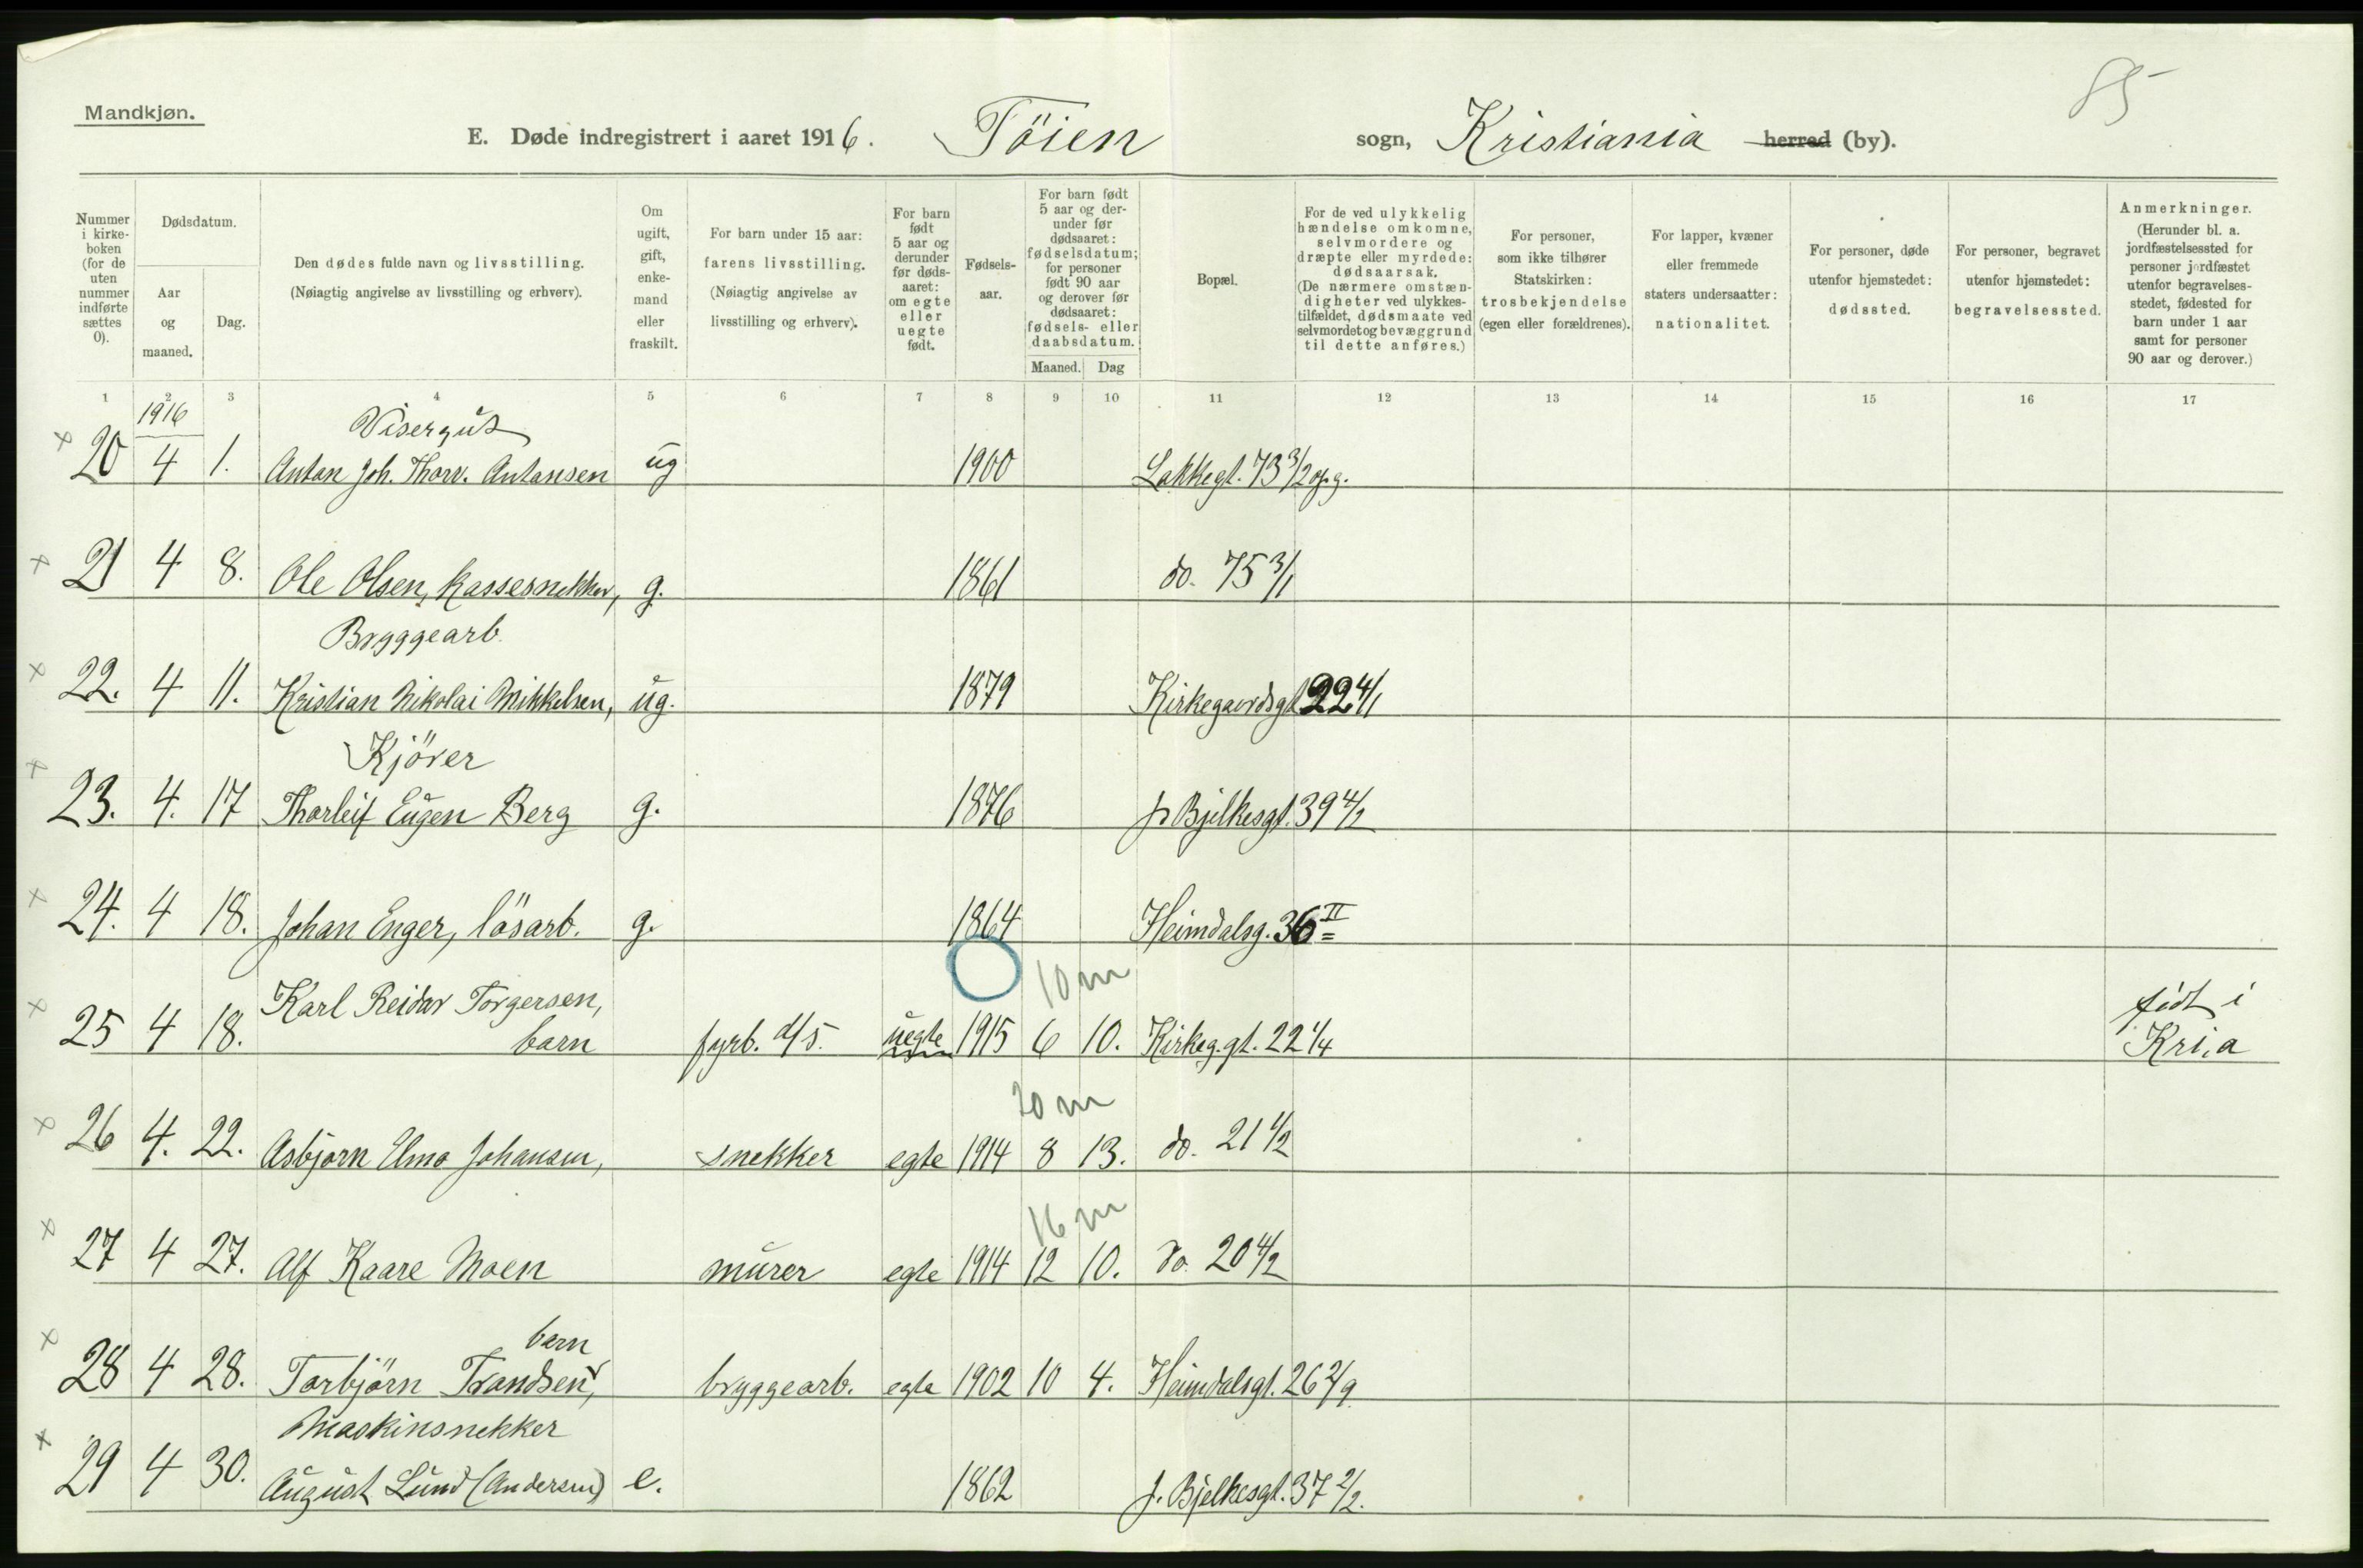 85
Mandkjøn.
E. Døde indregistrert i aaret 1916. Töien sogn, Kristiania herred (by).
Nummer i kirke-boken (for de uten nummer indførte sættes 0).
Dødsdatum.
Aar og maaned.
Dag.
Den dødes fulde navn og livsstilling.
(Nøiagtig angivelse av livsstilling og erhverv).
Om ugift, gift, enke-mand eller fraskilt.
For barn under 15 aar: farens livsstilling.
(Nøiagtig angivelse av livsstilling og erhverv).
For barn født 5 aar og derunder før døds-aaret: om egte eller uegte født.
Fødsels-aar.
For barn født 5 aar og der-under før dødsaaret: fødselsdatum; for personer født 90 aar og derover før dødsaaret: fødsels- eller daabsdatum.
Maaned. Dag
Bopæl.
For de ved ulykkelig hændelse omkomne, selvmordere og dræpte eller myrdede: dødsaarsak.
(De nærmere omstæn-digheter ved ulykkes-tilfældet, dødsmaate ved selvmordet og bevæggrund til dette anføres.)
For personer, som ikke tilhører Statskirken: trosbekjendelse (egen eller forældrenes).
For lapper, kvæner eller fremmede staters undersaatter: nationalitet.
For personer, døde utenfor hjemstedet: dødssted.
For personer, begravet utenfor hjemstedet: begravelsessted.
Anmerkninger.
(Herunder bl. a. jordfæstelsessted for personer jordfæstet utenfor begravelses-stedet, fødested for barn under 1 aar samt for personer 90 aar og derover.)
1 2 3 4 5 6 7 8 9 10 11 12 13 14 15 16 17
1916 Visergut
20 4 1. Anton Joh. Thorv. Antonsen ug 1900 Lakkegt. 73 3/2 opg.
21 4 8. Ole Olsen, Kassesnekker, g. 1861 do. 75 3/1
Bryggearb.
22. 4 11. Kristian Nikolai Mikkelsen, ug. 1879 Kirkegaardsgt 22 4/1
Kjörer
23. 4. 17 Thorleif Eugen Berg g. 1876 J. Bjelkesgt. 39 4/2
24. 4 18. Johan Enger, lösarb. g. 1864 Heimdalsg. 36 II
10 m
Karl Reidar Torgersen, født i
25 4 18. barn fyrb. d/s. uegte 1915 6 10. Kirkeg.gt. 22 1/4 Kri.a
20 m
26 4. 22. Asbjørn Elmo Johansen, snekker egte 1914 8 13. do. 21 1/2
16 m
27 4 27. Alf Kaare Moen murer egte 1914 12 10. do. 20 4/2
barn
28 4 28. Torbjörn Trandsen, bryggearb. egte 1902 10 4. Heimdalsgt. 26 2/9
Maskinsnekker
29 4 30. August Lund (Andersen) e. 1862 J. Bjelkesgt. 37 2/2.